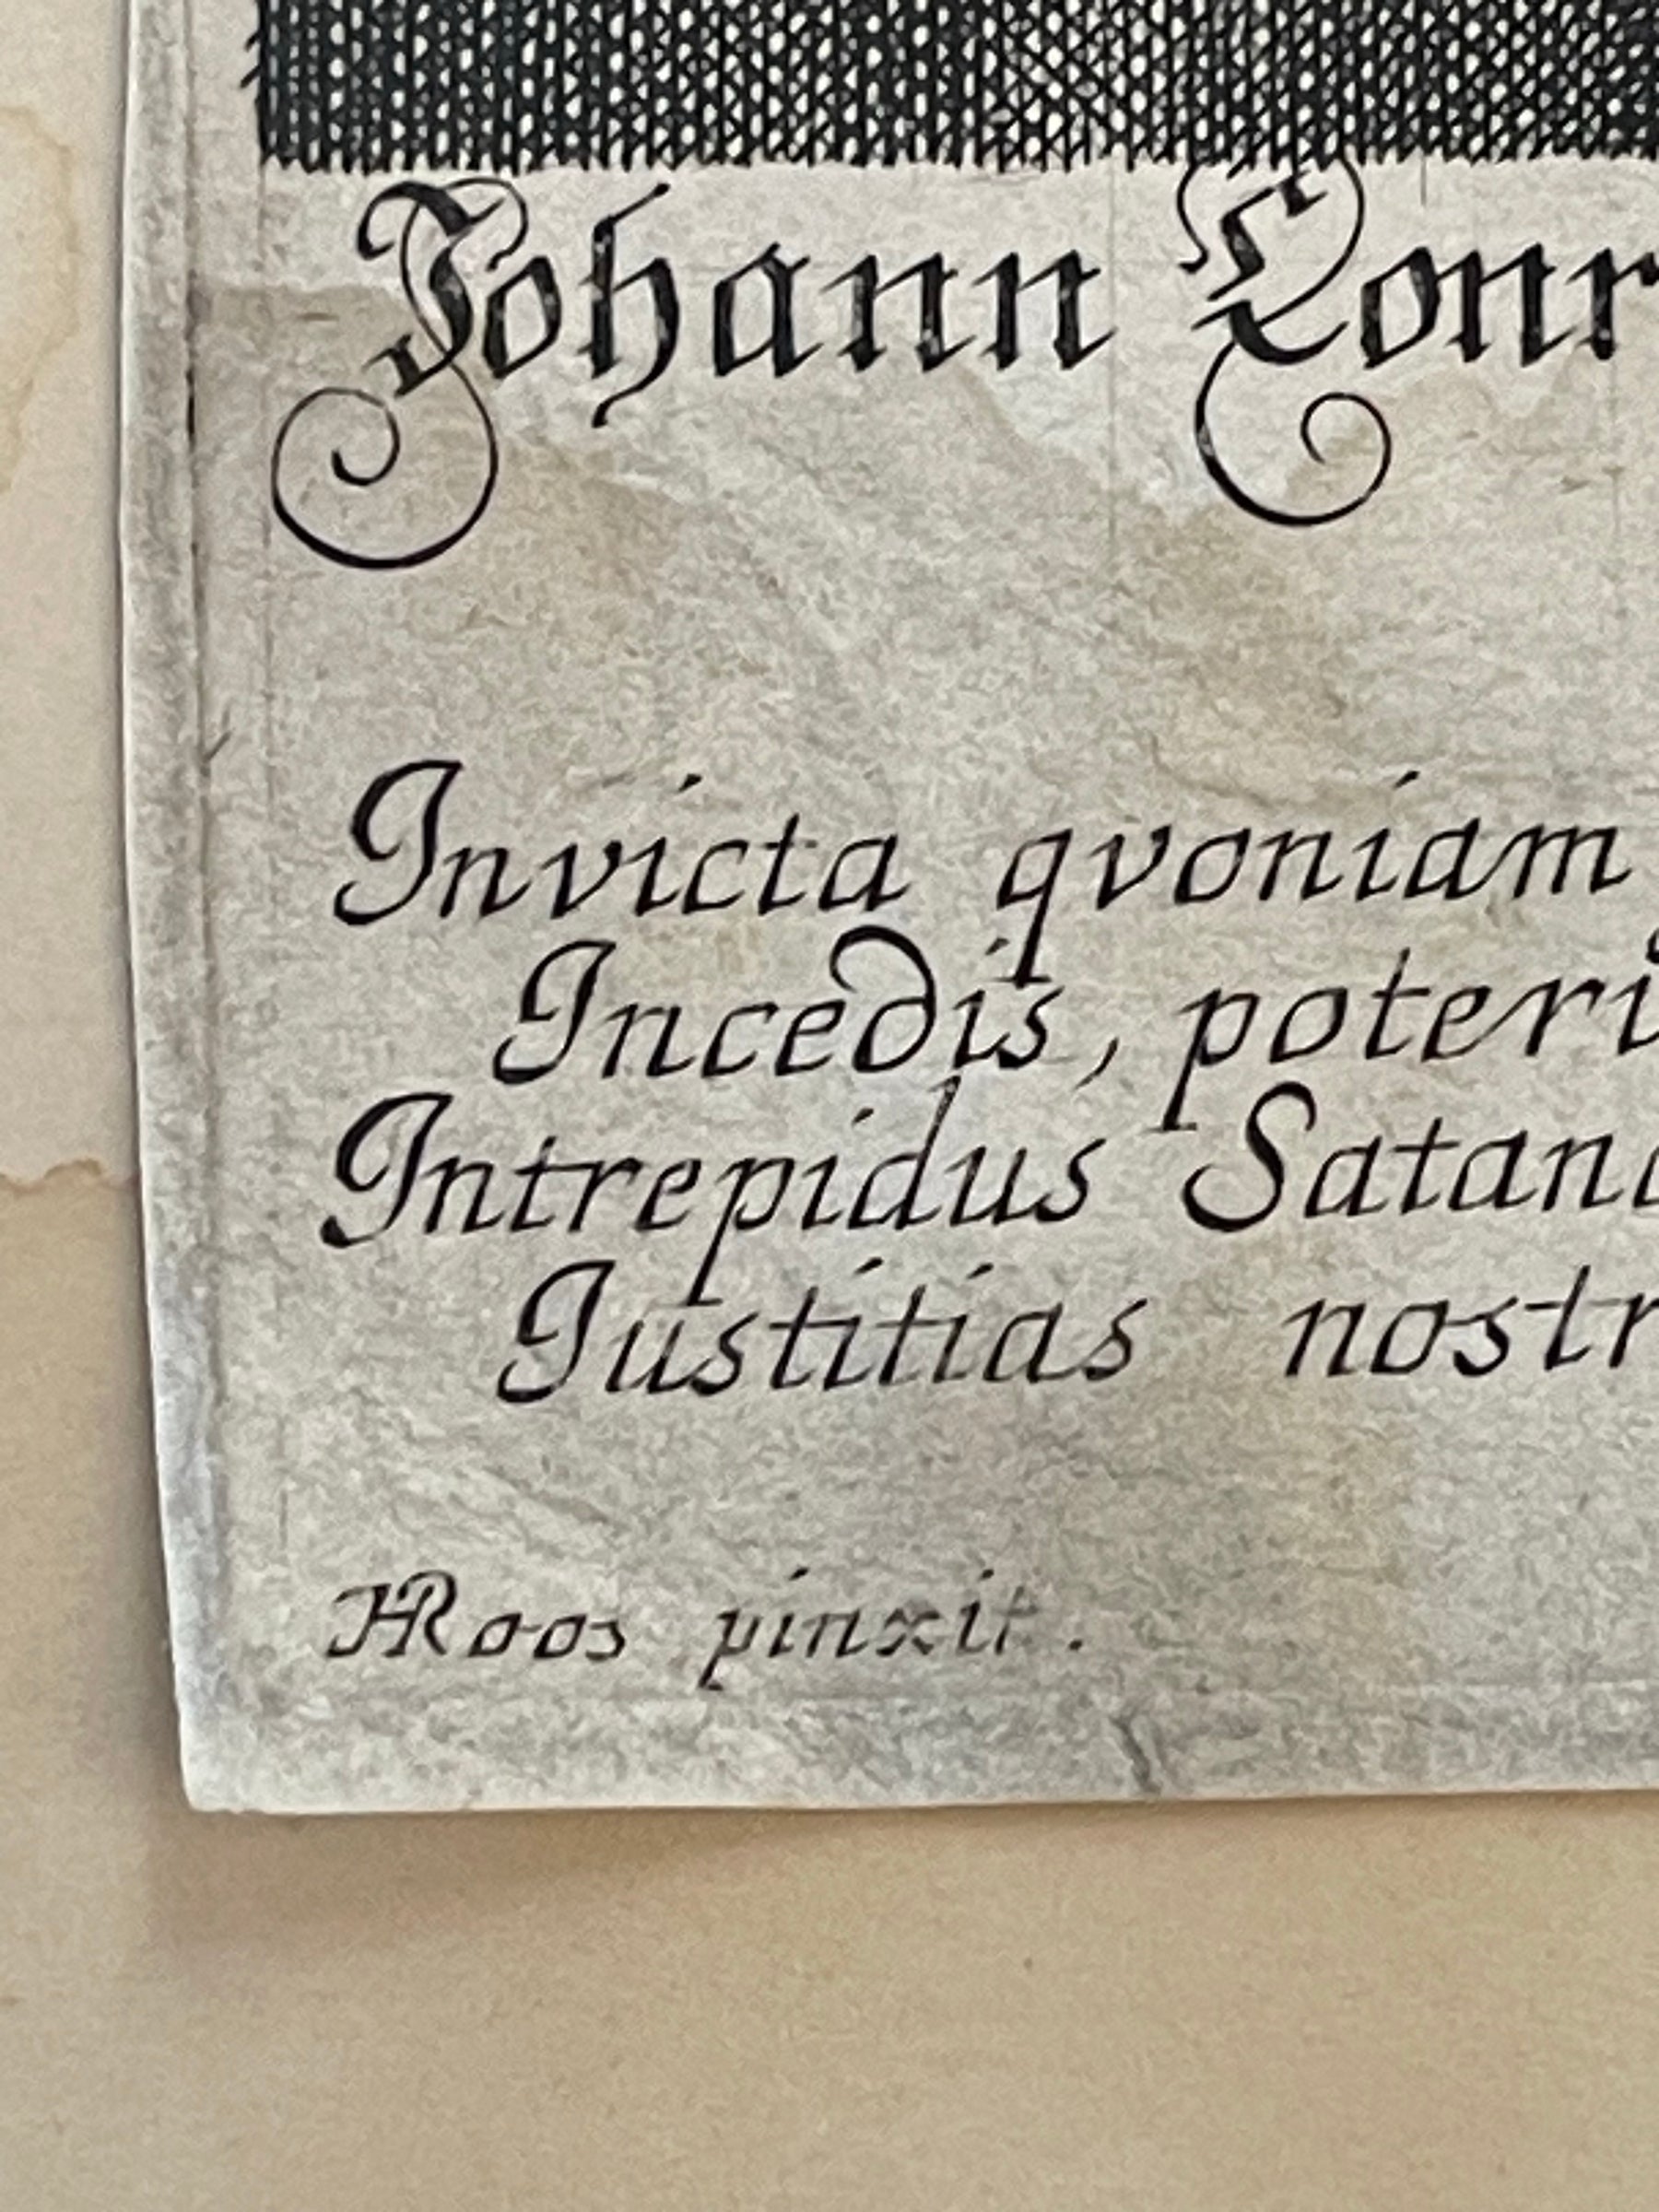 Johann Conr
Invicta qvoniam
Incedis, poteri
Intrepidus Satana
Iustitias nostr
HRoos pinxit.